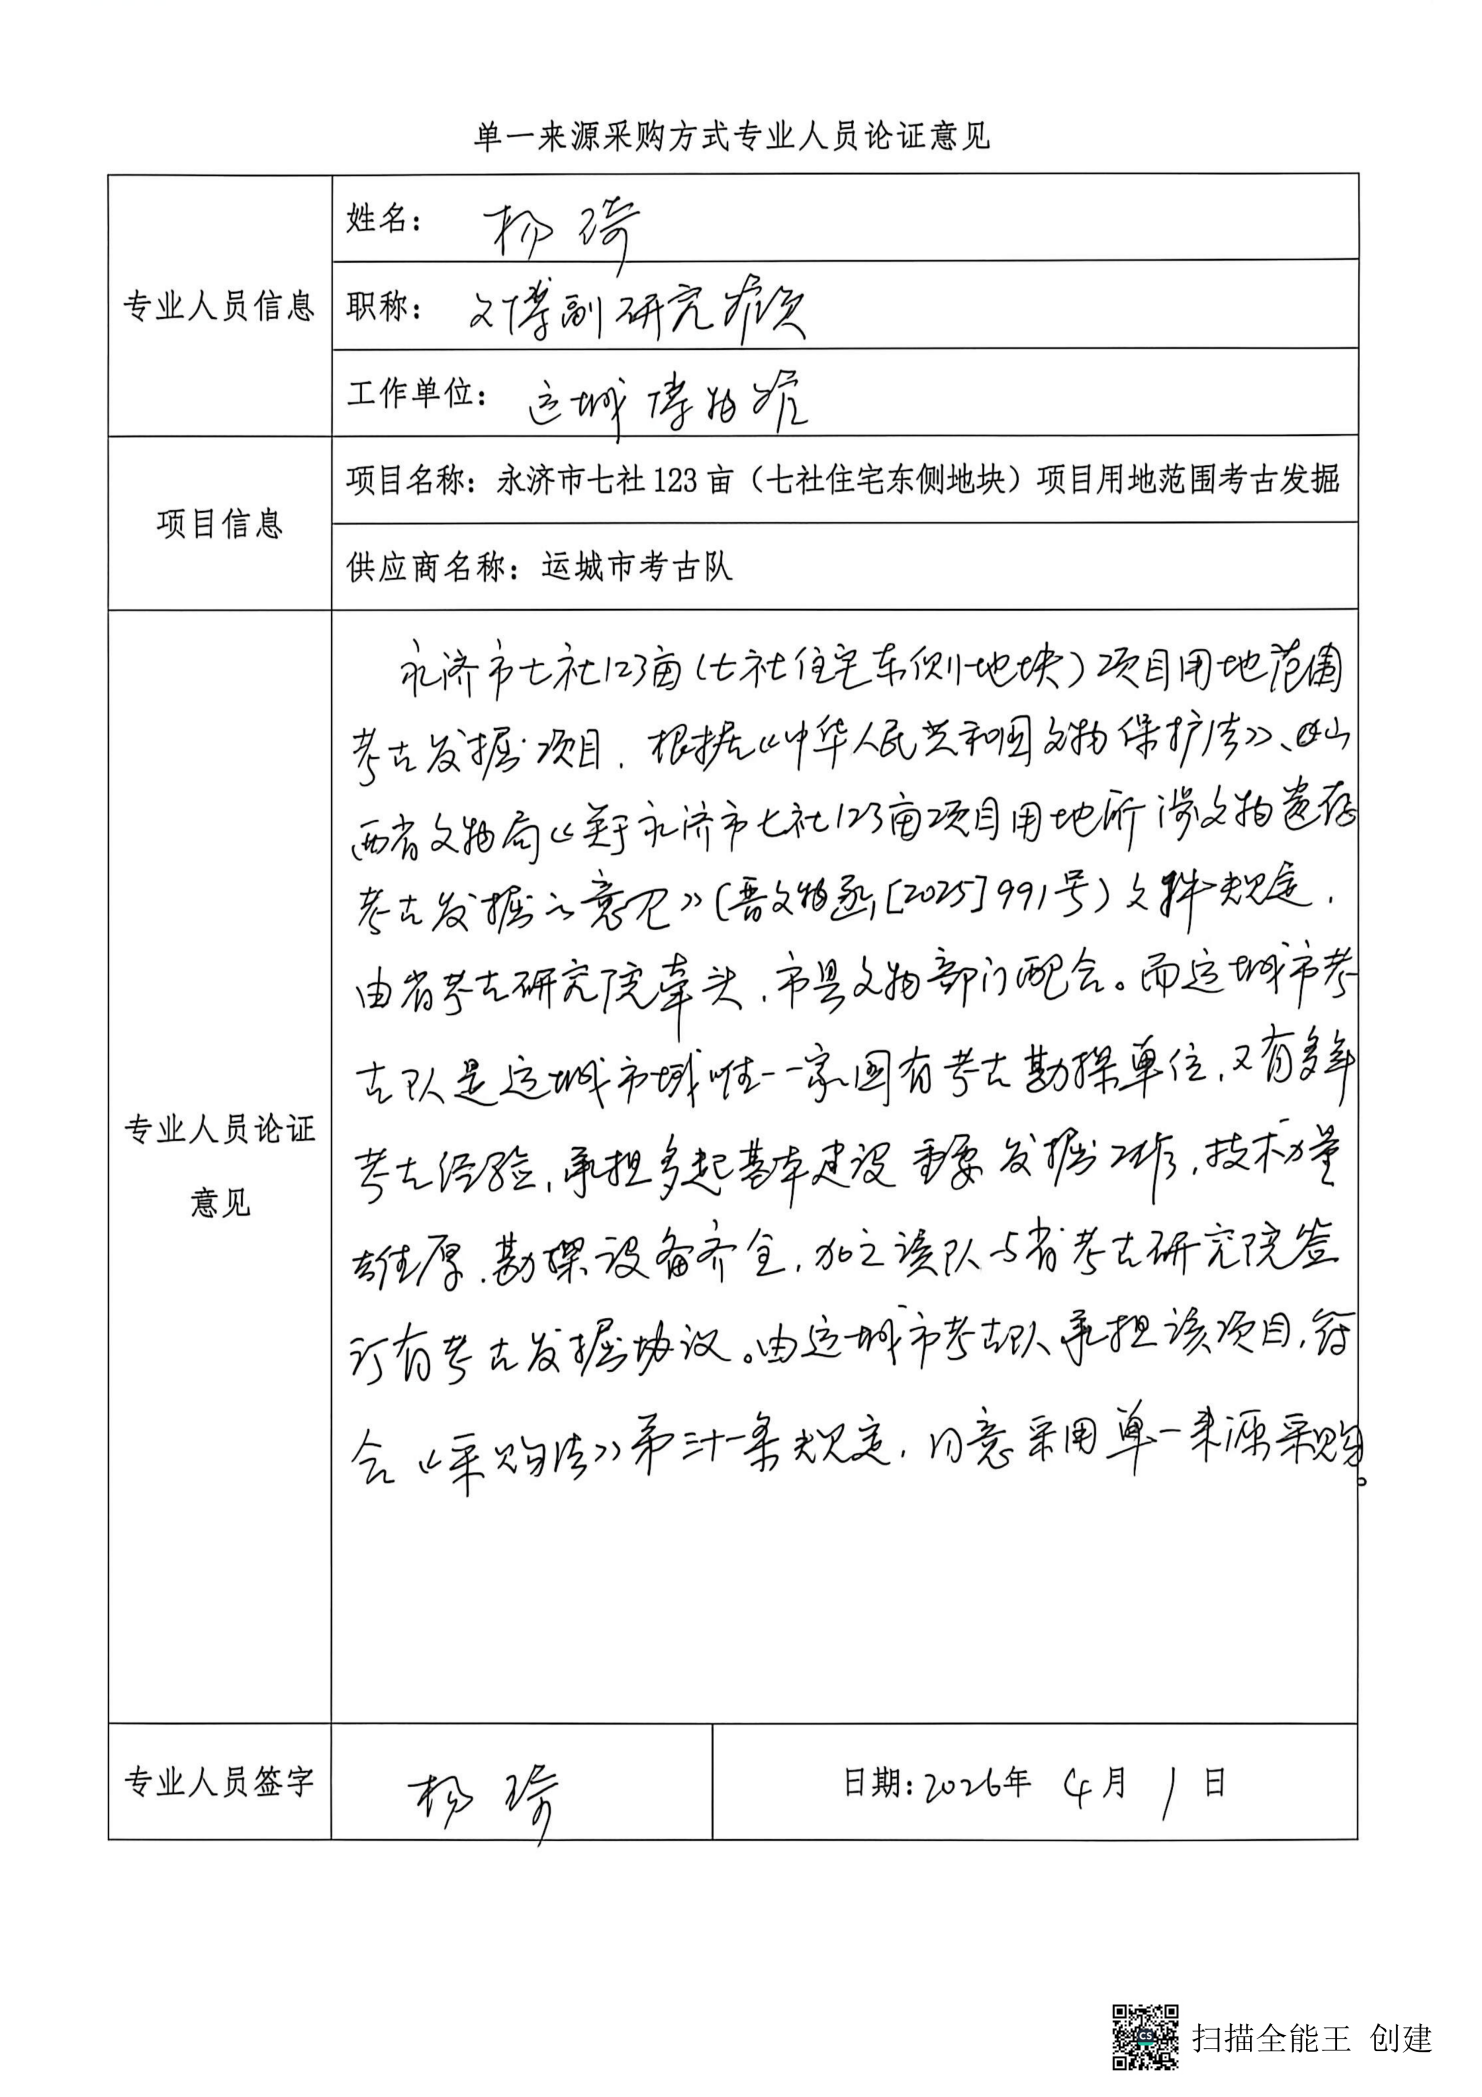 单一来源采购方式专业人员论证意见
专业人员信息
姓名： 杨琦
职称： 文博副研究馆员
工作单位： 运城博物馆
项目信息
项目名称：永济市七社 123 亩（七社住宅东侧地块）项目用地范围考古发掘
供应商名称：运城市考古队
专业人员论证
意见
永济市七社123亩(七社住宅东侧地块)项目用地范围
考古发掘项目，根据《中华人民共和国文物保护法》、山
西省文物局《关于永济市七社123亩项目用地所涉文物遗存
考古发掘的意见》(晋文物函[2025]991号)文件规定，
由省考古研究院牵头，市县文物部门配合。而运城市考
古队是运城市域唯一一家国有考古勘探单位，又有多年
考古经验，承担多起基本建设重要发掘工作，技术力量
雄厚，勘探设备齐全，加之该队与省考古研究院签
订有考古发掘协议。由运城市考古队承担该项目，符
合《采购法》第三十一条规定，同意采用单一来源采购。
专业人员签字
杨琦
日期：2026年 4月 1日
扫描全能王 创建